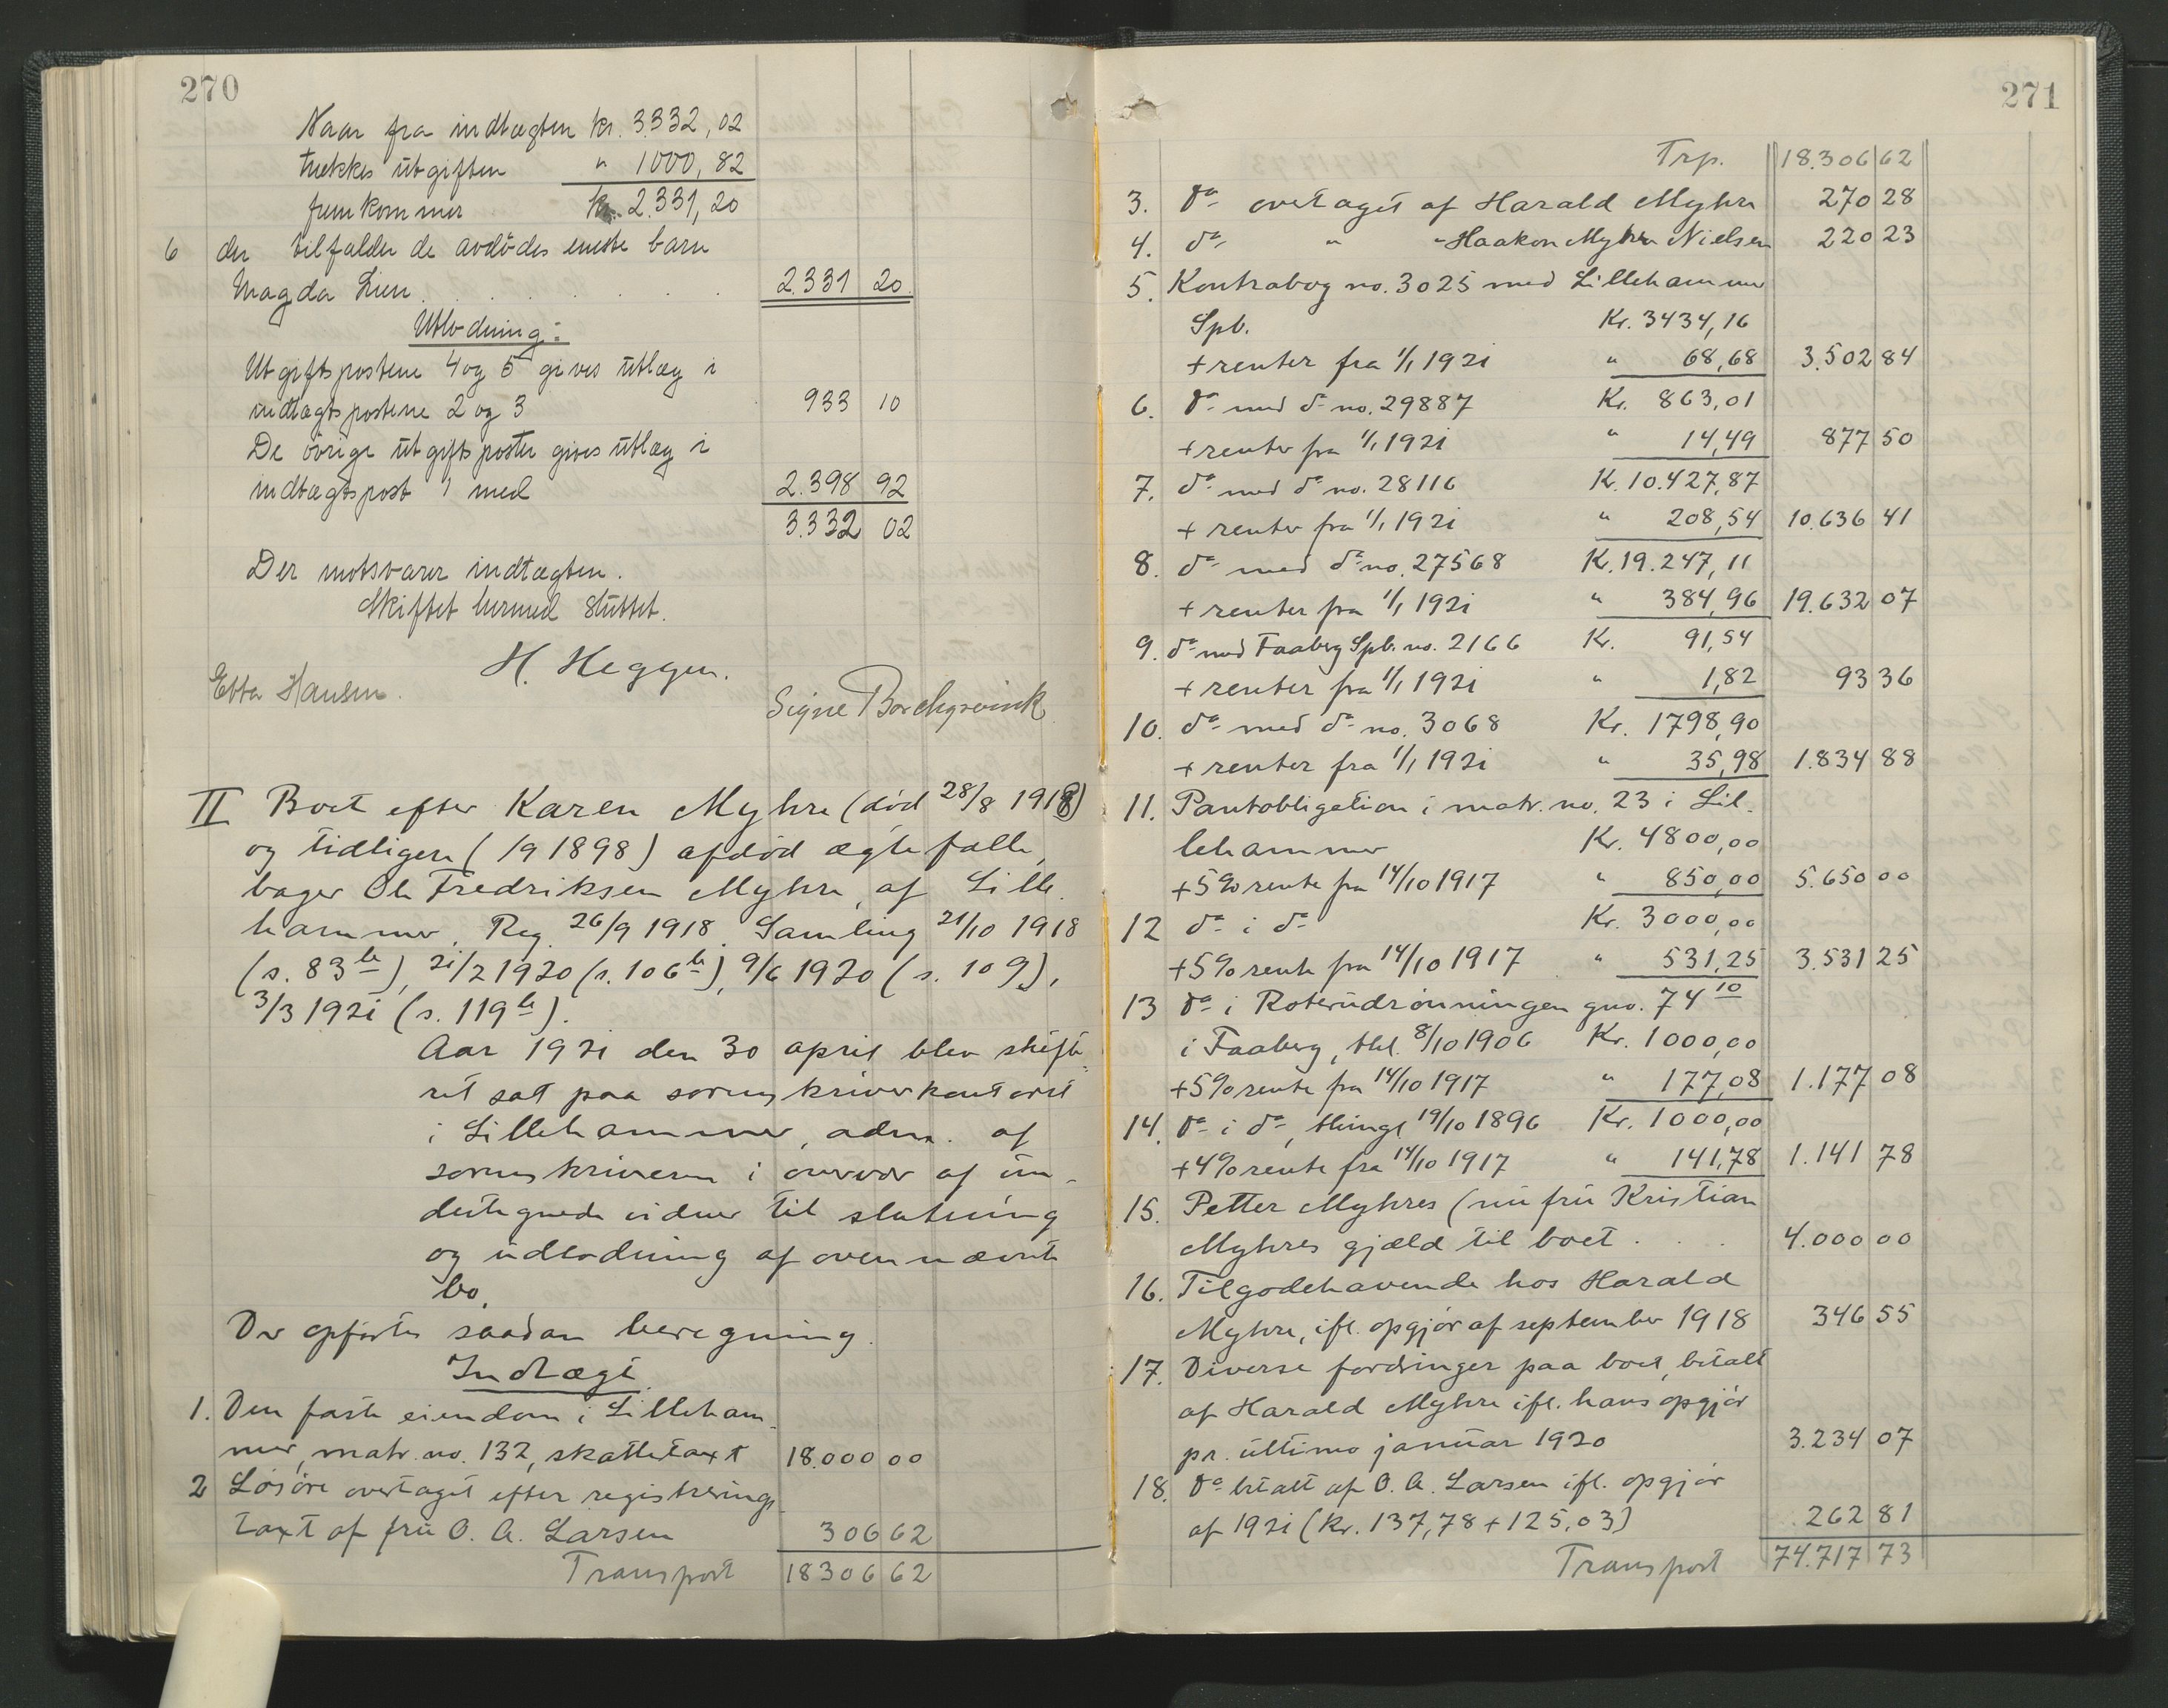 270
Naar fra indtægten kr. 3.332,02
trækkes utgiften " 1000,82
fremkommer kr. 2.331,20
6 der tilfalder de avdödes eneste barn
Magda Lien . . . . . . . . 2.331 20
Utlodning:
Utgiftspostene 4 og 5 gives utlæg i
indtægtspostene 2 og 3 933 10
De övrige utgiftsposter gives utlæg i
indtægtspost 1 med 2.398 92
3.332 02
Der motsvarer indtægten.
Skiftet hermed sluttet.
H. Heggen.
Ebba Hansen. Signe Borchgrevink
II Boet efter Karen Myhre (död 28/8 1918)
og tidligere ( /9 1898) afdöd ægtefælle,
bager Ole Fredriksen Myhre, af Lille
hammer. Reg. 26/9 1918. Samling 21/10 1918
(s. 83b), 21/2 1920 (s. 106b), 9/6 1920 (s. 109),
3/3 1921 (s. 119b).
Aar 1921 den 30 april blev skifte-
ret sat paa sorenskriverkontoret
i Lillehammer, adm. af
sorenskriveren i overvær af un-
dertegnede vidner til slutning
og udlodning af ovennævnte
bo.
Der opförtes saadan beregning.
Indtægt.
1. Den faste eiendom i Lilleham-
mer, matr. no. 132, skattetaxt 18.000 00
2 Lösöre overtaget efter registrerings-
taxt af fru O. A. Larsen 306 62
Transport 18306 62
271
Trp. 18.306 62
3. Do overtaget af Harald Myhre 270 28
4. do " " Haakon Myhre Nielsen 220 23
5. Kontrabog no. 3025 med Lillehammer
Spb. Kr. 3434,16
+ renter fra 1/1 1921 " 68,68 3.502 84
6. Do med do no. 29887 Kr. 863,01
+ renter fra 1/1 1921 " 14,49 877 50
7. do med do no. 28116 Kr. 10.427,87
+ renter fra 1/1 1921 " 208,54 10.636 41
8. do med do no. 27568 Kr. 19.247,11
+ renter fra 1/1 1921 " 384,96 19.632 07
9. do med Faaberg Spb. no. 2166 Kr. 91,54
+ renter fra 1/1 1921 " 1,82 93 36
10. do med do no. 3068 Kr. 1798,90
+ renter fra 1/1 1921 " 35,98 1.834 88
11. Pantobligation i matr. no. 23 i Lil-
lehammer Kr. 4800,00
+ 5% rente fra 14/10 1917 " 850,00 5.650 00
12 do i do Kr. 3000,00
+ 5% rente fra 14/10 1917 " 531,25 3.531 25
13 Do i Roterudrönningen gno. 74 10
i Faaberg, thl. 8/10 1906 Kr. 1000,00
+ 5% rente fra 14/10 1917 " 177,08 1.177 08
14. Do i do, thingl 19/10 1896 Kr. 1000,00
+ 4% rente fra 14/10 1917 " 141,78 1.141 78
15. Petter Myhres (nu fru Kristian
Myhres gjæld til boet . . . 4.000 00
16. Tilgodehavende hos Harald
Myhre, ifl. opgjör af september 1918 346 55
17. Diverse fordringer paa boet, betalt
af Harald Myhre ifl. hans opgjör
pr. ultimo januar 1920 3.234 07
18. Do betalt af O. A. Larsen ifl. opgjör
af 1921 (Kr. 137,78 + 125,03) 262 81
Transport 74.717 73